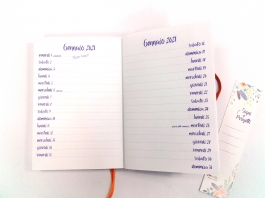 Gennaio 2021
venerdì 1
sabato 2
domenica 3
lunedì 4
martedì 5
mercoledì 6
giovedì 7
venerdì 8
sabato 9
domenica 10
lunedì 11
martedì 12
mercoledì 13
giovedì 14
venerdì 15
Gennaio 2021
sabato 16
domenica 17
lunedì 18
martedì 19
mercoledì 20
giovedì 21
venerdì 22
sabato 23
domenica 24
lunedì 25
martedì 26
mercoledì 27
giovedì 28
venerdì 29
sabato 30
domenica 31